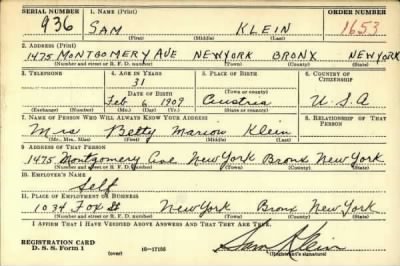 SERIAL NUMBER 1. NAME (Print) ORDER NUMBER
936 SAM KLEIN 1653
(First) (Middle) (Last)
2. ADDRESS (Print)
1475 MONTGOMERY AVE NEWYORK BRONX NEWYORK
(Number and street or R. F. D. number) (Town) (County) (State)
3. TELEPHONE 4. AGE IN YEARS 5. PLACE OF BIRTH 6. COUNTRY OF CITIZENSHIP
31
DATE OF BIRTH (Town or county)
Feb 6 1909 Austria U.S.A
(Exchange) (Number) (Mo.) (Day) (Yr.) (State or country)
7. NAME OF PERSON WHO WILL ALWAYS KNOW YOUR ADDRESS 8. RELATIONSHIP OF THAT PERSON
Mrs Betty Marion Klein
(Mr., Mrs., Miss) (First) (Middle) (Last)
9. ADDRESS OF THAT PERSON
1475 Montgomery Ave New York Bronx New York
(Number and street or R. F. D. number) (Town) (County) (State)
10. EMPLOYER'S NAME
Self
11. PLACE OF EMPLOYMENT OR BUSINESS
1034 Fox St New York Bronx New York
(Number and street or R. F. D. number) (Town) (County) (State)
I AFFIRM THAT I HAVE VERIFIED ABOVE ANSWERS AND THAT THEY ARE TRUE.
REGISTRATION CARD
D. S. S. Form 1 (over) 16-17105 Sam Klein
(Registrant's signature)